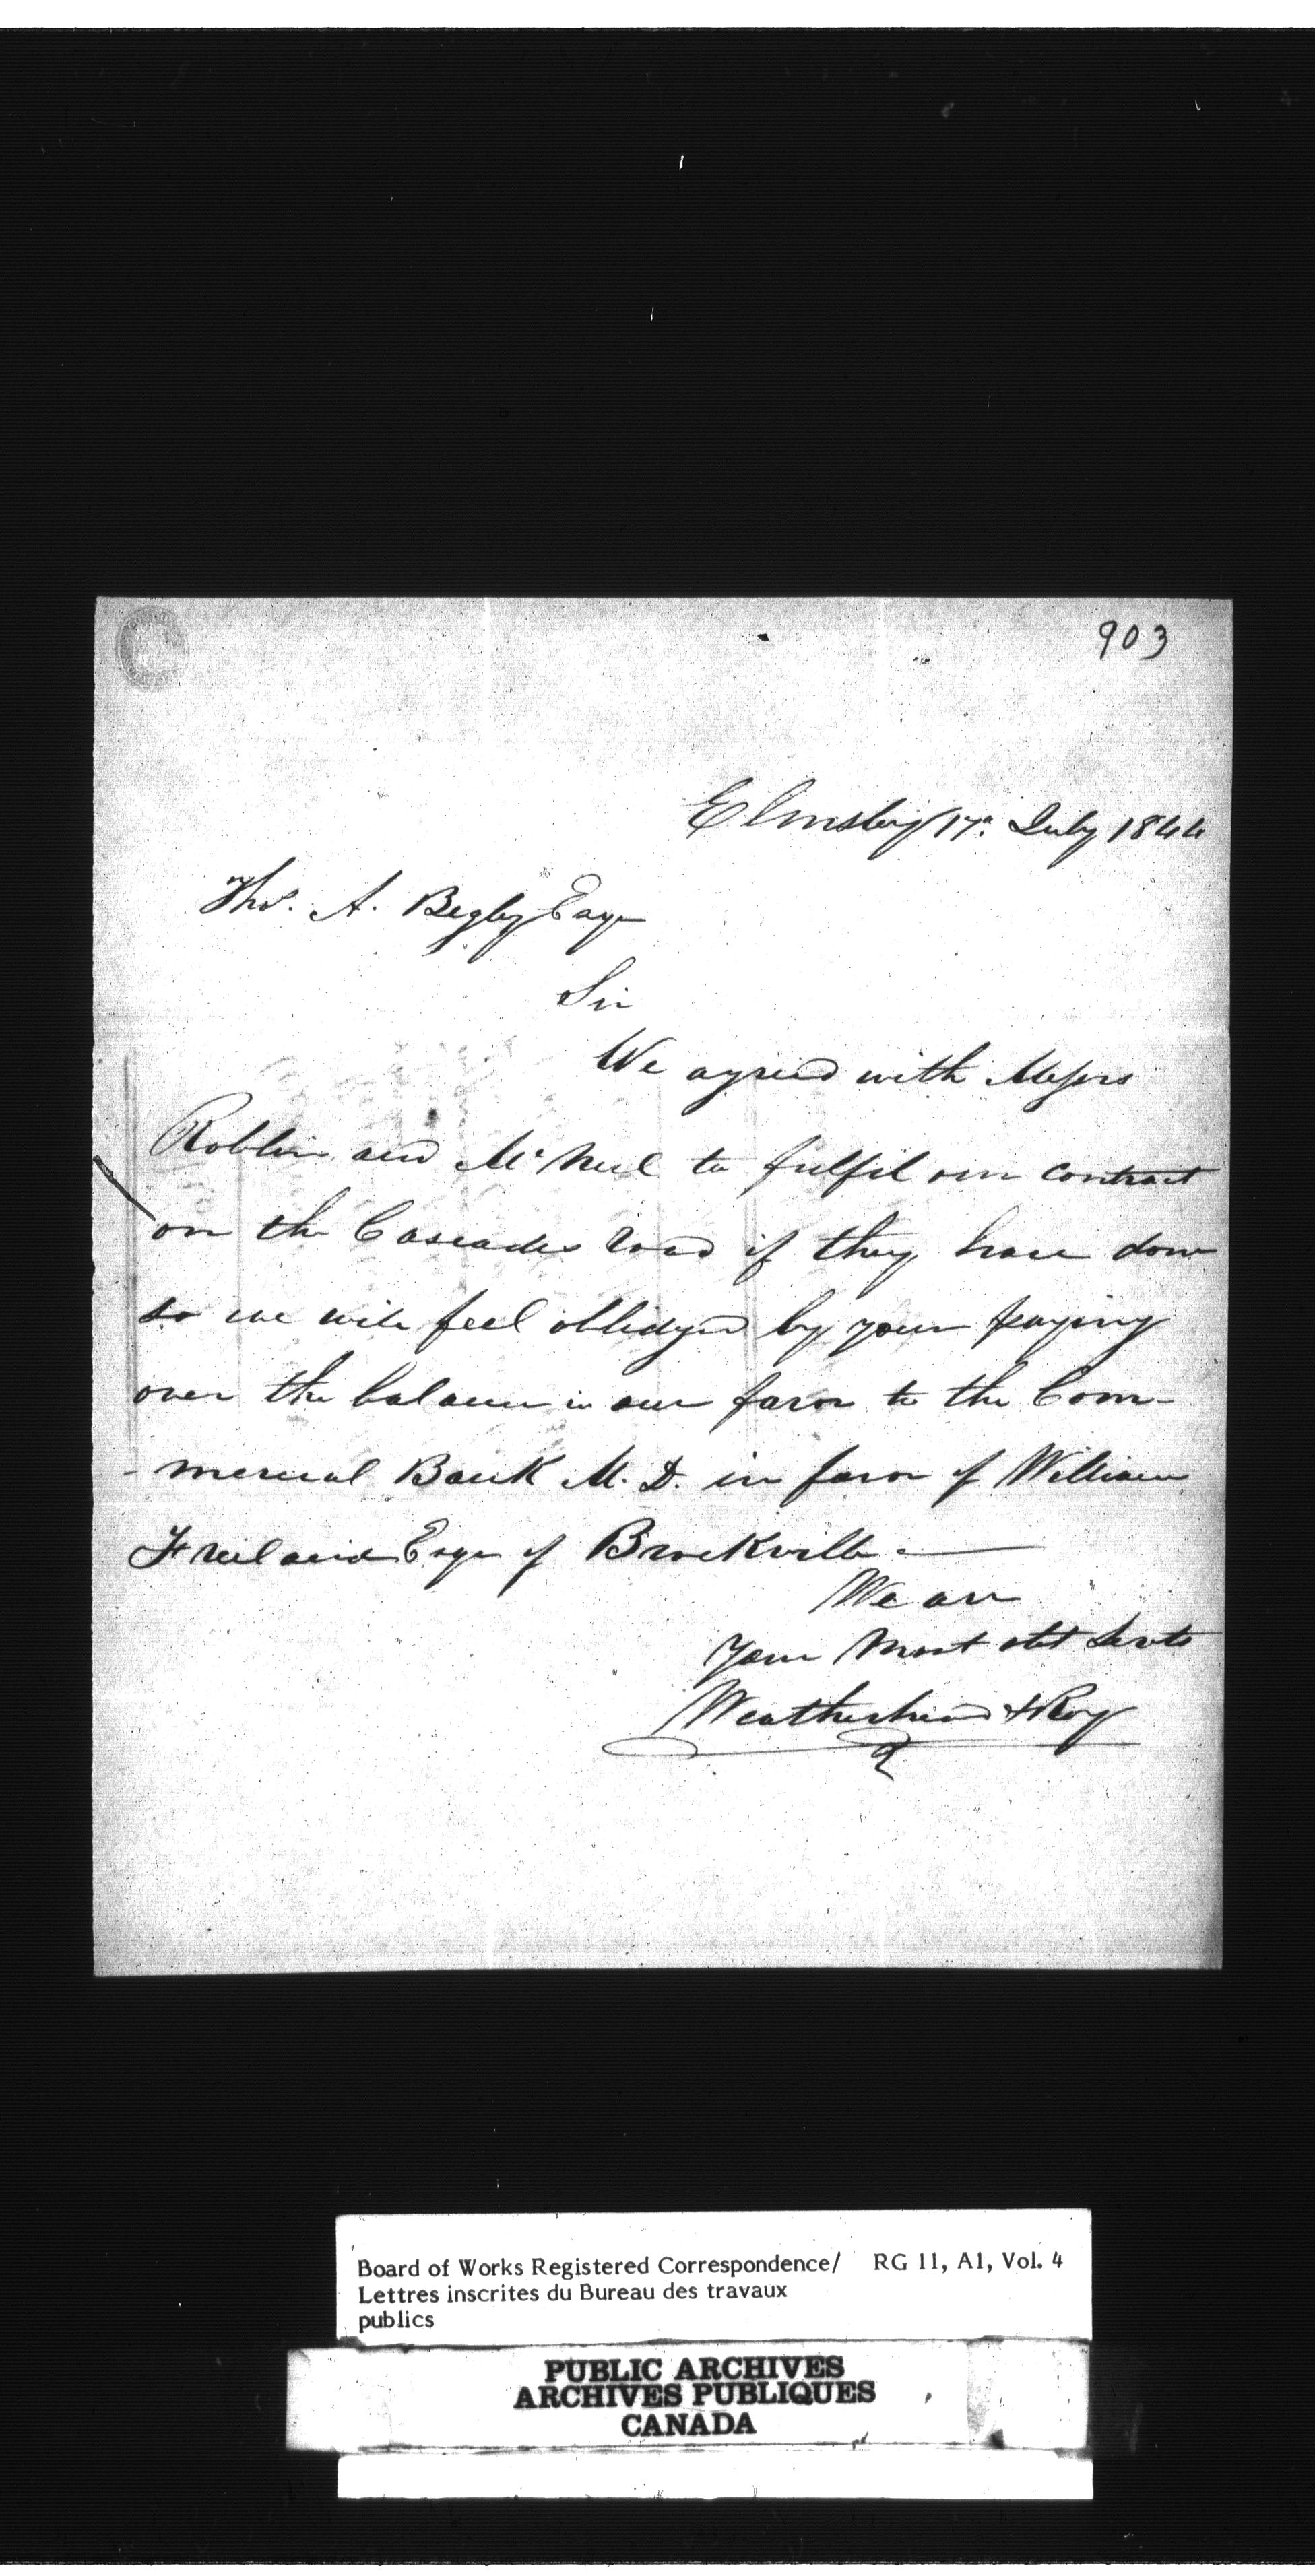 903
Elmsley 17th July 1844
Thos. A. Begly Esqr
Sir
We agreed with Messrs
Roblin and McNeil to fulfil our contract
on the Cascades road if they have done
so we will feel oblidged by your paying
over the balance in our favor to the Com-
-mercial Bank M. D. in favor of William
Freeland Esqr of Brockville.
We are
Your Most obt Servts
Weatherhead & Roy
Board of Works Registered Correspondence/ RG 11, A1, Vol. 4
Lettres inscrites du Bureau des travaux
publics
PUBLIC ARCHIVES
ARCHIVES PUBLIQUES
CANADA